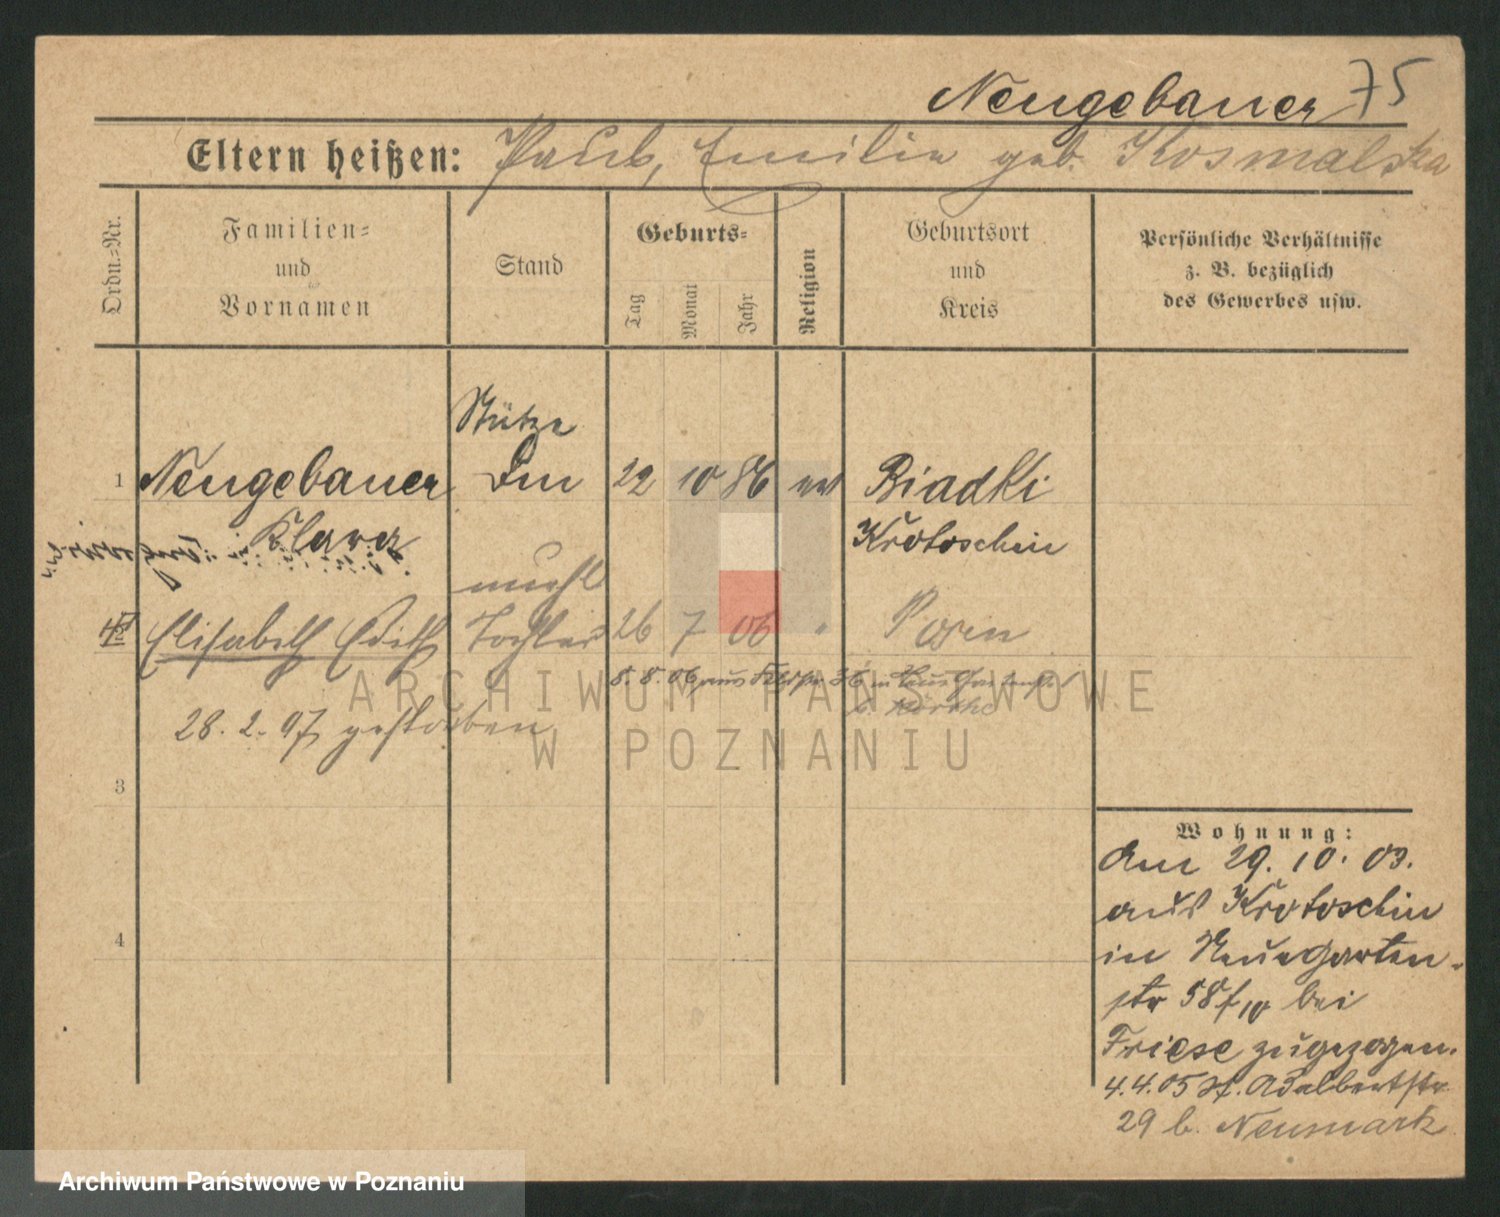 Neugebauer 75
Eltern heißen: Paul, Emilie geb. Kosmalska
Ordn.-Nr.
Familien-
und
Vornamen
Stand
Geburts-
Tag
Monat
Jahr
Religion
Geburtsort
und
Kreis
Persönliche Verhältnisse
z. B. bezüglich
des Gewerbes usw.
Stütze
1 Neugebauer 22 10 86 Biadki
Klara Krotoschin
unehl
Elisabeth Edith Tochter 26 7 06 " Posen
8. 8. 06 aus
28. 2. 07 gestorben
3
4
Wohnung:
Am 29. 10. 03.
aus Krotoschin
in Neuegarten-
str 58 bei
Friese zugezogen.
4.4.05 St. Adalbertstr
29 b. Neumark
ARCHIWUM PAŃSTWOWE
W POZNANIU
Archiwum Państwowe w Poznaniu